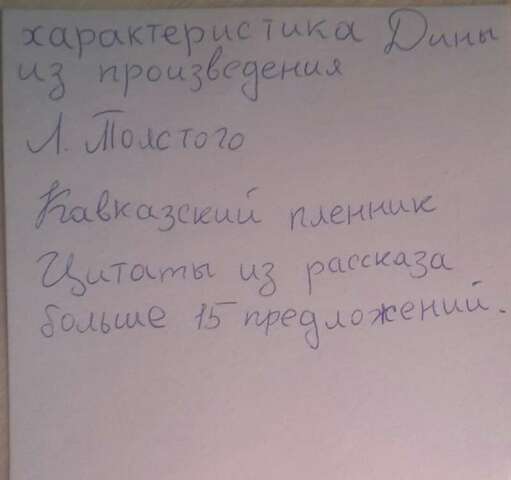 характеристика Дины
из произведения
Л. Толстого
Кавказский пленник
Цитаты из рассказа
больше 15 предложений.